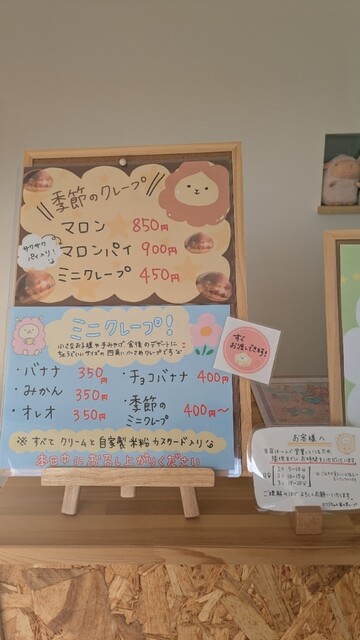 季節のクレープ
マロン 850円
サクサク
パイ入り!
マロンパイ 900円
ミニクレープ 450円
ミニクレープ!
小さなお子様や手みやげ、食後のデザートに
ちょうどいいサイズの四角い小さめクレープです
・バナナ 350円
・みかん 350円
・オレオ 350円
・チョコバナナ 400円
・季節の
ミニクレープ 400円〜
※すべて クリームと自家製 米粉カスタード入り
本日中にお召し上がりください
すぐ
お渡しできます!
お客様へ
ご理解のほどよろしくお願いいたします。